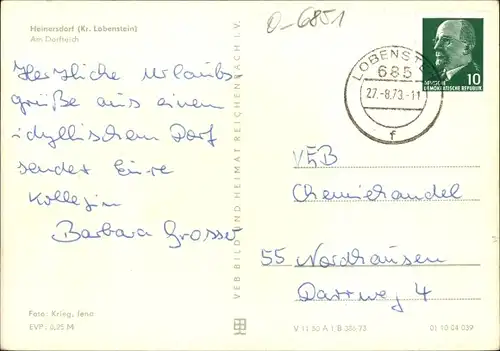 Heinersdorf (Kr. Lobenstein)
Am Dorfteich
O-6851
Herzliche Urlaubs
grüße aus einem
idyllischem Dorf
sendet Eure
Kollegin
Barbara Grosser
Foto: Krieg, Jena
EVP: 0,25 M
VEB BILD UND HEIMAT REICHENBACH I. V.
LOBENST
685
27.-8.73.-11
f
10
DEUTSCHE
DEMOKRATISCHE REPUBLIK
VEB
Chemiehandel
55 Nordhausen
Darrweg 4
V 11 50 A 1 B 386/73
01 10 04 039